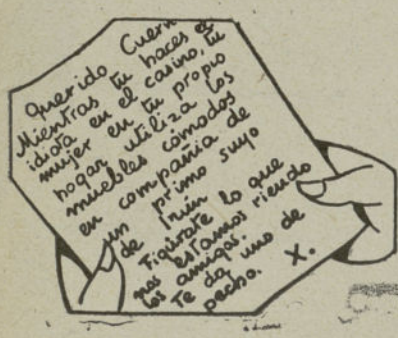 Querido Cuern
Mientras tu haces el
idiota en el casino, tu
mujer en tu propio
hogar utiliza los
muebles cómodos
en compañia de
un primo suyo
de Irún
Figúrate lo que
nos estamos riendo
los amigos.
Te da uno de
pecho. X.